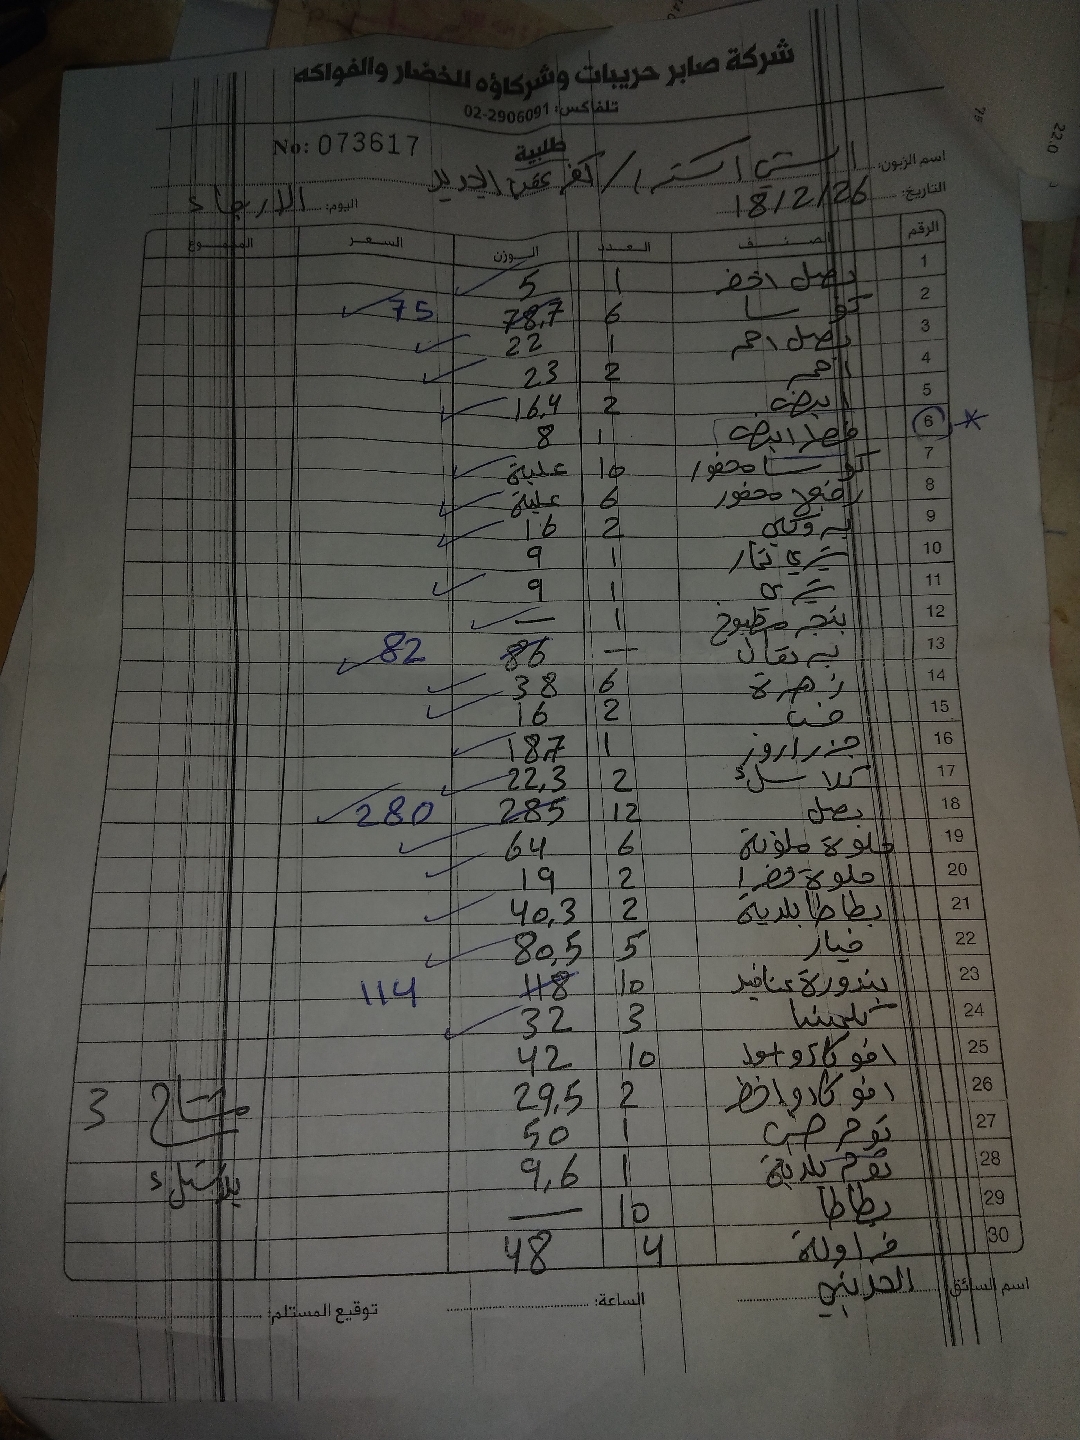 شركة صابر حريبات وشركاؤه للخضار والفواكه
تلفاكس: 02-2906091
طلبية
No: 073617
اسم الزبون: / كفر عقب الجديد
التاريخ: 18/2/26 اليوم: الاربعاء
الرقم الصنف العدد الوزن السعر المجموع
1 بصل اخضر 1 5
2 كوسا 6 78,7 75
3 بصل احمر 1 22
4 احمر 2 23
5 ابيض 2 16,4
6 ابيض 1 8
7 كوسا محفور 10 علبة
8 محفور 6 علبة
9 2 16
10 1 9
11 1 9
12 مطبوخ 1 —
13 برتقال — 86 82
14 زهرة 6 38
15 خس 2 16
16 جزر اروز 1 18,7
17 2 22,3
18 بصل 12 285 280
19 حلوة ملونة 6 64
20 حلوة خضرا 2 19
21 بطاطا بلدية 2 40,3
22 خيار 5 80,5
23 بندورة عناقيد 10 118 114
24 كلمنتينا 3 32
25 افوكادو اسود 10 42
26 افوكادو اخضر 2 29,5
27 ثوم 1 50
28 ثوم بلدية 1 9,6
29 بطاطا 10 —
30 فراولة 4 48
مشتاح 3
بلاستيك
اسم السائق: الساعة: توقيع المستلم:
22.0